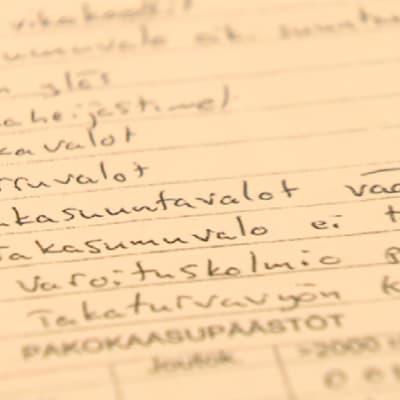 vikakoodit
sumuvalo oik. suunta
ylös
heijastimet
kavalot
rruvalot
kasuuntavalot vää
Takasumuvalo ei t
Varoituskolmio
Takaturvavyön
PAKOKAASUPÄÄSTÖT
Joutok >2000